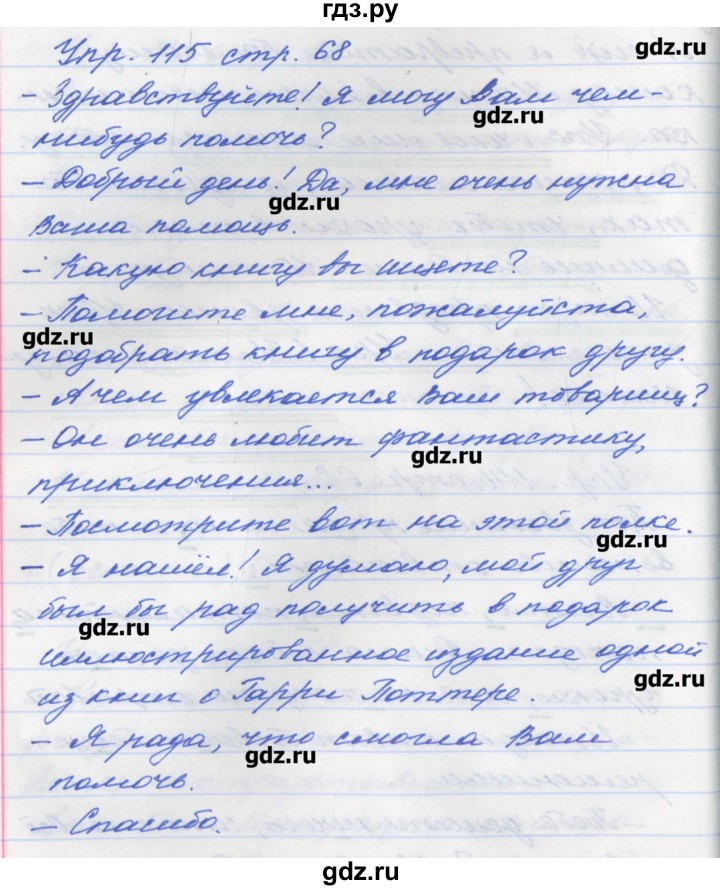 гдз.ру
Упр. 115 стр. 68
gdz.ru
- Здравствуйте! Я могу Вам чем-
gdz.ru
нибудь помочь?
- Добрый день! Да, мне очень нужна
gdz.ru
Ваша помощь.
- Какую книгу вы ищете?
- Помогите мне, пожалуйста,
gdz.ru
подобрать книгу в подарок другу.
- А чем увлекается Ваш товарищ?
- Он очень любит фантастику,
gdz.ru
приключения...
- Посмотрите вот на этой полке.
gdz.ru
- Я нашёл! Я думаю, мой друг
был бы рад получить в подарок
gdz.ru
иллюстрированное издание одной
gdz.ru
из книг о Гарри Поттере.
- Я рада, что смогла Вам
gdz.ru
помочь.
- Спасибо.
gdz.ru